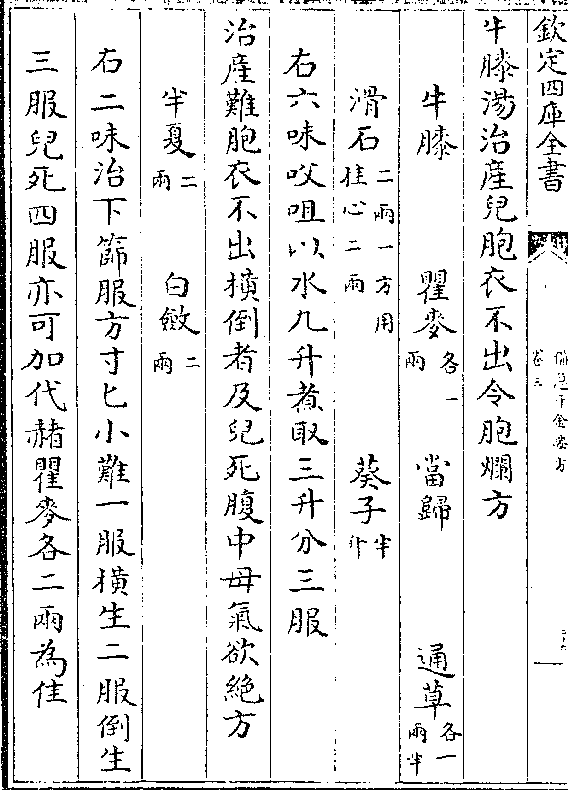 欽定四庫全書
備急千金要方
卷三
牛膝湯治産兒胞衣不出令胞爛方
牛膝 瞿麥各一兩 當歸 通草各一兩半
滑石二兩一方用桂心二兩 葵子半升
右六味㕮咀以水九升煮取三升分三服
治産難胞衣不出橫倒者及兒死腹中母氣欲絶方
半夏二兩 白斂二兩
右二味治下篩服方寸匕小難一服橫生二服倒生
三服兒死四服亦可加代赭瞿麥各二兩為佳